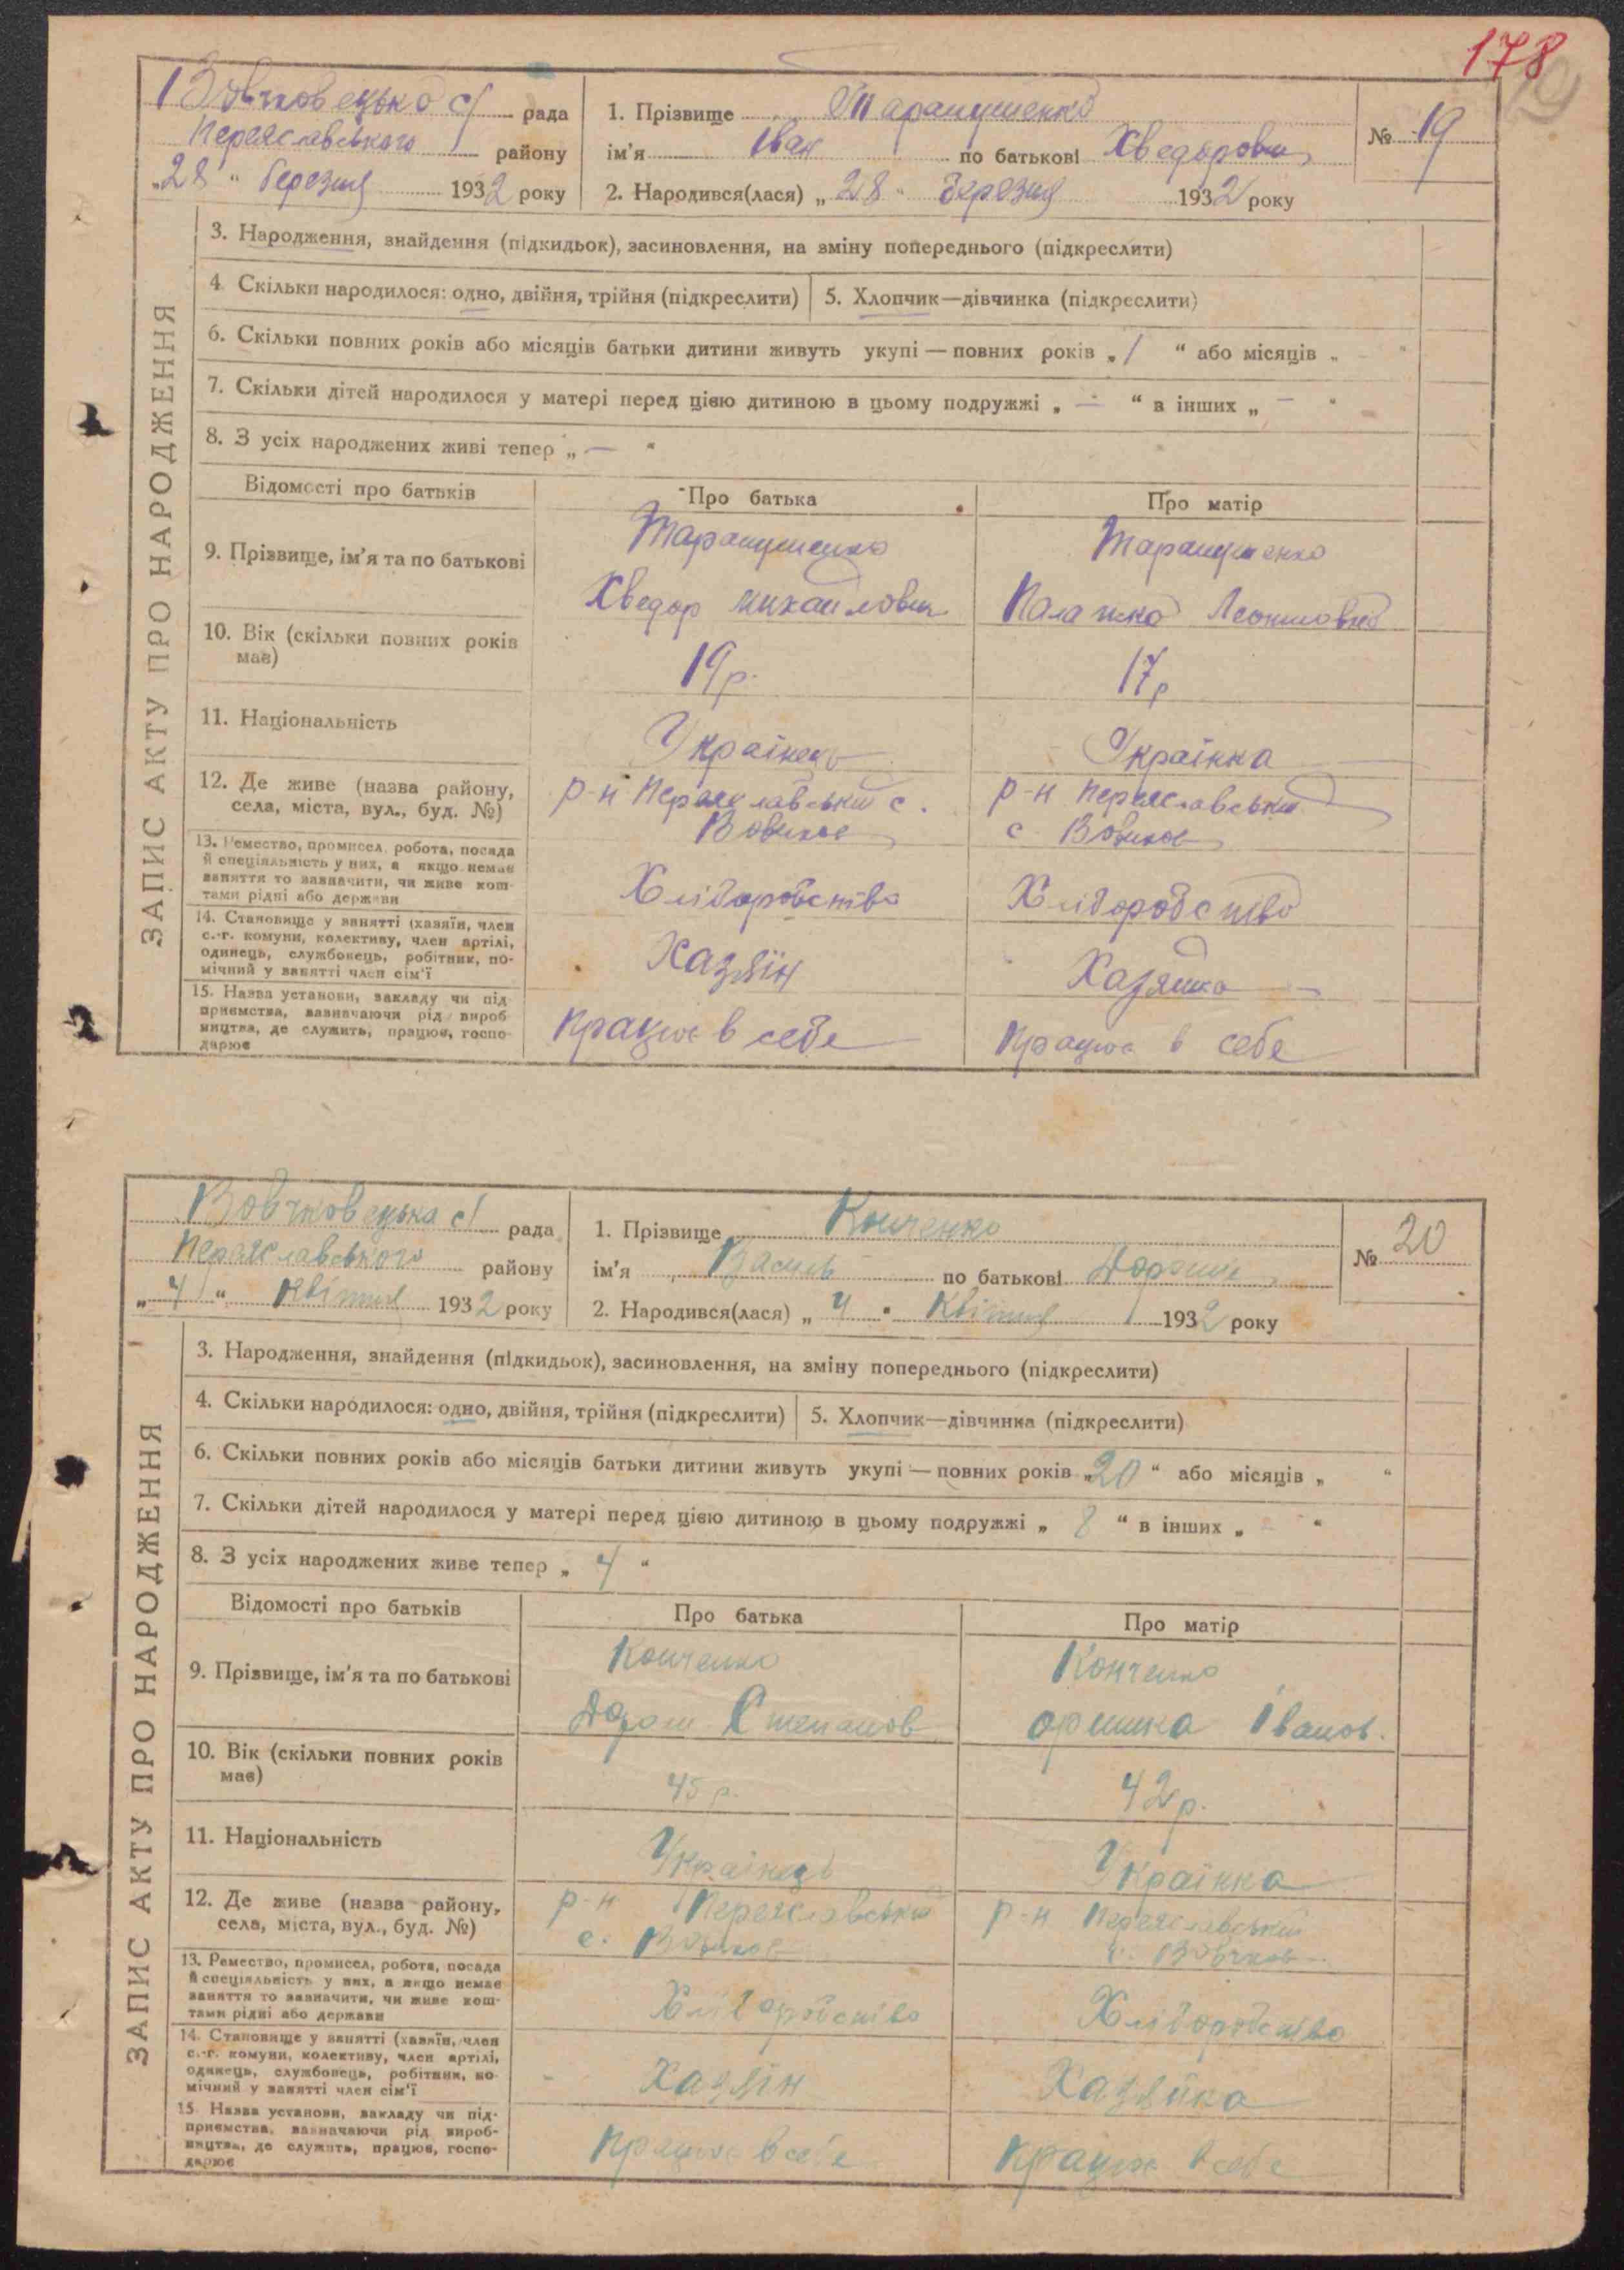 178
Вовчковецька с/ рада
Переяславського району
„28“ березня 1932 року
1. Прізвище Таранушенко
ім'я Іван по батькові Хведорович
№ 19
2. Народився(лася) „28“ березня 1932 року
ЗАПИС АКТУ ПРО НАРОДЖЕННЯ
3. Народження, знайдення (підкидьок), засиновлення, на зміну попереднього (підкреслити)
4. Скільки народилося: одно, двійня, трійня (підкреслити) 5. Хлопчик—дівчинка (підкреслити)
6. Скільки повних років або місяців батьки дитини живуть укупі — повних років „1“ або місяців „ – “
7. Скільки дітей народилося у матері перед цією дитиною в цьому подружжі „ — “ в інших „ — “
8. З усіх народжених живі тепер „ — “
Відомості про батьків Про батька Про матір
9. Прізвище, ім'я та по батькові
Таранушенко Таранушенко
Хведор Михайлович Палажка Леонтовна
10. Вік (скільки повних років
має)
19р. 17р
11. Національність
Українець Українка
12. Де живе (назва району,
села, міста, вул., буд. №)
р-н Переяславський с. р-н Переяславський
Вовчков с Вовчков
13. Ремество, промисел, робота, посада
й спеціяльність у них, а якщо немає
заняття то зазначити, чи живе кош-
тами рідні або держави
Хліборобство Хліборобство
14. Становище у занятті (хазяїн, член
с.-г. комуни, колективу, член артілі,
одинець, службовець, робітник, по-
мічний у занятті член сім'ї
Хазяїн Хазяйка
15. Назва установи, закладу чи під
приємства, зазначаючи рід вироб
ництва, де служить, працює, госпо-
дарює
Працює в себе Працює в себе
Вовчковецька с/ рада
Переяславського району
„4“ Квітня 1932 року
1. Прізвище Конченко
ім'я Василь по батькові
№ 20
2. Народився(лася) „4“ Квітня 1932 року
ЗАПИС АКТУ ПРО НАРОДЖЕННЯ
3. Народження, знайдення (підкидьок), засиновлення, на зміну попереднього (підкреслити)
4. Скільки народилося: одно, двійня, трійня (підкреслити) 5. Хлопчик—дівчинка (підкреслити)
6. Скільки повних років або місяців батьки дитини живуть укупі — повних років „20“ або місяців „ “
7. Скільки дітей народилося у матері перед цією дитиною в цьому подружжі „ 8 “ в інших „ – “
8. З усіх народжених живе тепер „ 4 “
Відомості про батьків Про батька Про матір
9. Прізвище, ім'я та по батькові
Конченко Конченко
Степанов Оришка Іванов.
10. Вік (скільки повних років
має)
45р. 42р.
11. Національність
Українець Українка
12. Де живе (назва району,
села, міста, вул., буд. №)
р-н Переяславський р-н Переяславський
с. Вовчков с. Вовчков
13. Ремество, промисел, робота, посада
й спеціяльність у них, а якщо немає
заняття то зазначити, чи живе кош-
тами рідні або держави
Хліборобство Хліборобство
14. Становище у занятті (хазяїн, член
с.-г. комуни, колективу, член артілі,
одинець, службовець, робітник, по-
мічний у занятті член сім'ї
Хазяїн Хазяйка
15 Назва установи, закладу чи під-
приємства, зазначаючи рід вироб-
ництва, де служить, працює, госпо-
дарює
Працює в себе Працює в себе